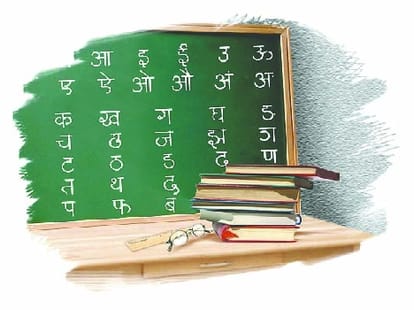 आ इ ई उ ऊ
ए ऐ ओ औ अं अ
क ख ग घ ङ
च छ ज झ ञ
ट ठ ड ढ ण
त थ द
प फ ब